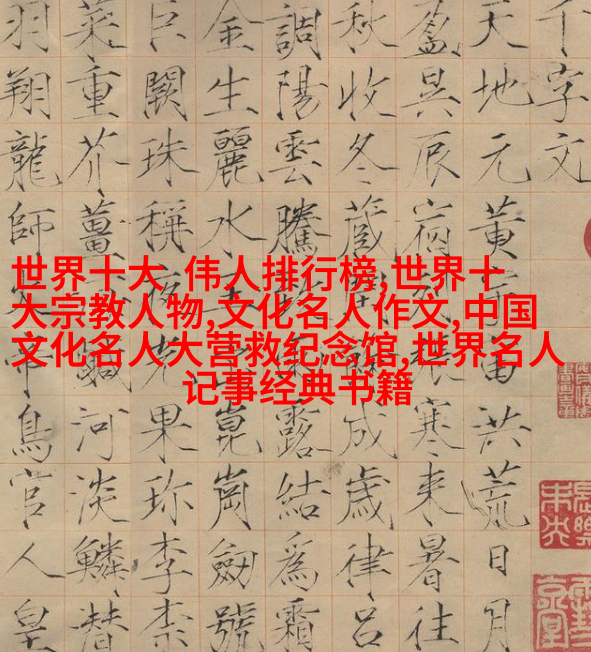 世界十大 伟人排行榜,世界十
大宗教人物,文化名人作文,中国
文化名人大营救纪念馆,世界名人
记事经典书籍
千字文
天地元黃宇宙洪荒日月
盈昃辰宿列張寒來暑往
秋收冬藏閏餘成歲律呂
調陽雲騰致雨露結為霜
金生麗水玉出崑崗劍號
巨闕珠稱夜光果珍李柰
菜重芥薑海鹹河淡鱗潛
羽翔龍師火帝鳥官人皇